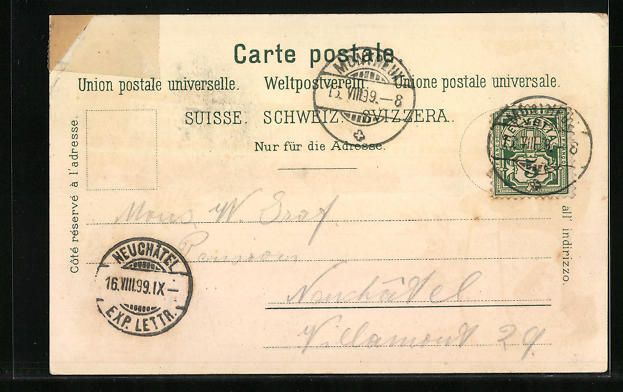 Carte postale.
Union postale universelle. Weltpostverein. Unione postale universale.
SUISSE. SCHWEIZ. SVIZZERA.
Nur für die Adresse.
Côté réservé à l'adresse.
all' indirizzo.
MONTREUX
15.VIII.99.–8
5
Mons W. Graf
Pension
Neuchâtel
Villamont 29
NEUCHÂTEL
16.VIII.99.IX–
EXP. LETTR.